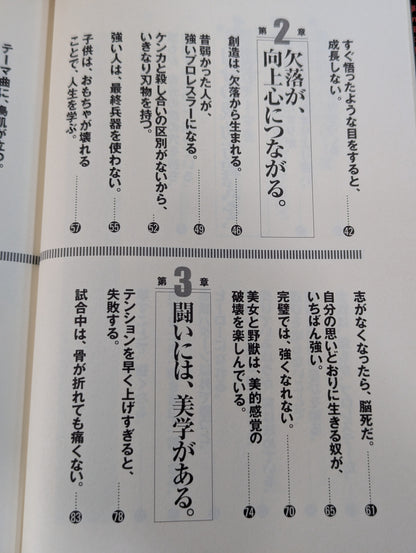 すぐ悟ったような目をすると、
成長しない。
42
第2章
欠落が、
向上心につながる。
創造は、欠落から生まれる。
46
昔弱かった人が、
強いプロレスラーになる。
49
ケンカと殺し合いの区別がないから、
いきなり刃物を持つ。
52
強い人は、最終兵器を使わない。
55
子供は、おもちゃが壊れる
ことで、人生を学ぶ。
57
テーマ曲に、鳥肌が立つ。
志がなくなったら、脳死だ。
61
自分の思いどおりに生きる奴が、
いちばん強い。
65
完璧では、強くなれない。
70
美女と野獣は、美的感覚の
破壊を楽しんでいる。
74
第3章
闘いには、美学がある。
テンションを早く上げすぎると、
失敗する。
78
試合中は、骨が折れても痛くない。
83